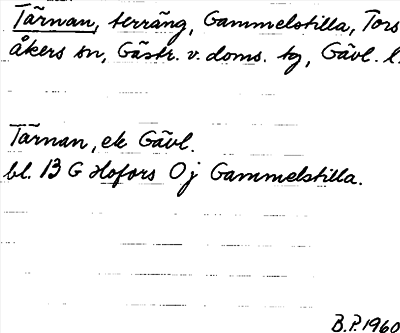 Tärnan, terräng, Gammelstilla, Tors
åkers sn, Gästr. v. doms. tg, Gävl. l.
Tärnan, ek Gävl.
bl. 13 G Hofors 0 j Gammelstilla.
B.P. 1960